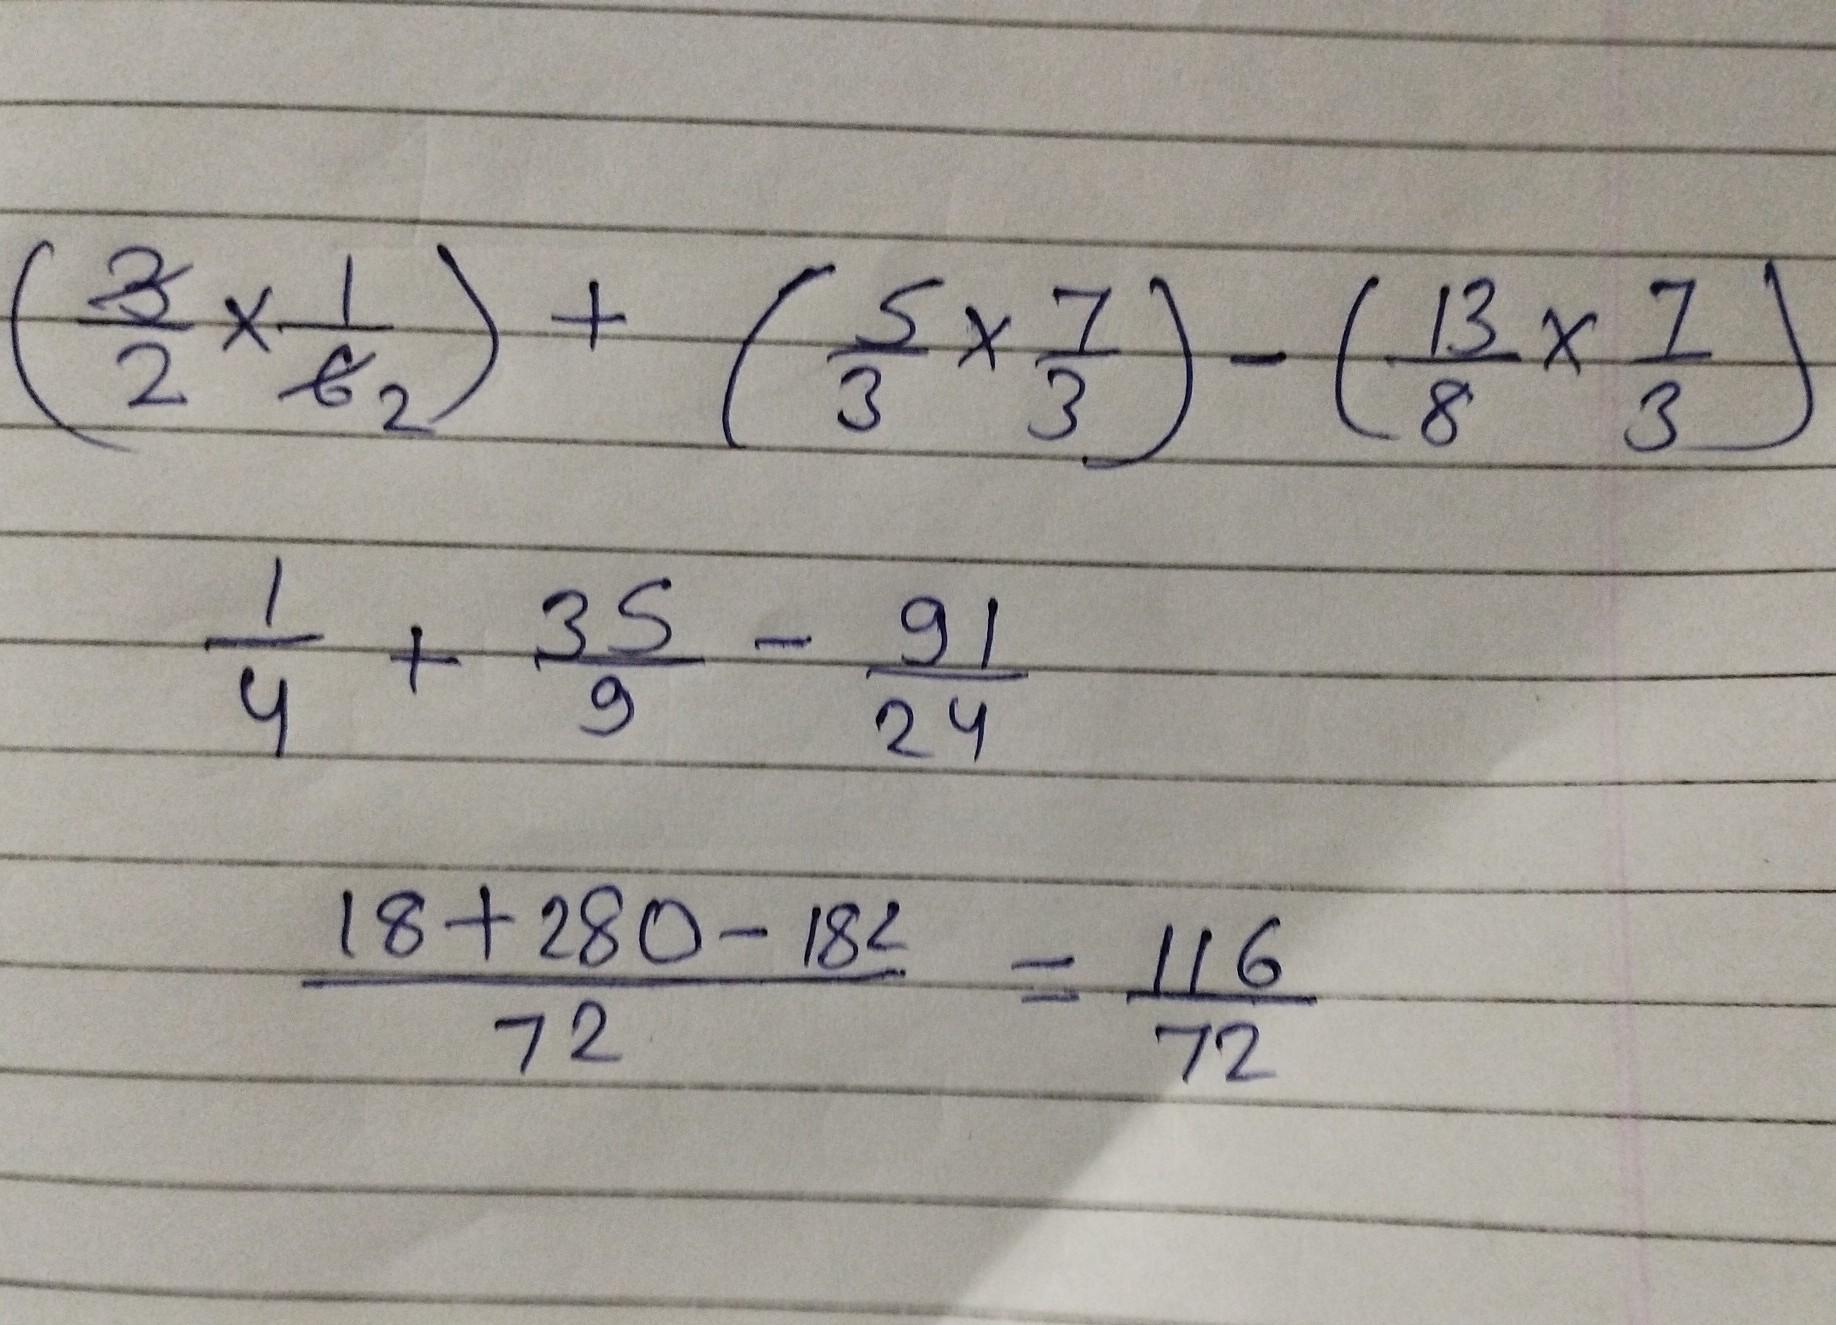 (3/2 × 1/6 2) + (5/3 × 7/3) - (13/8 × 7/3)
1/4 + 35/9 - 91/24
18+280-182/72 = 116/72